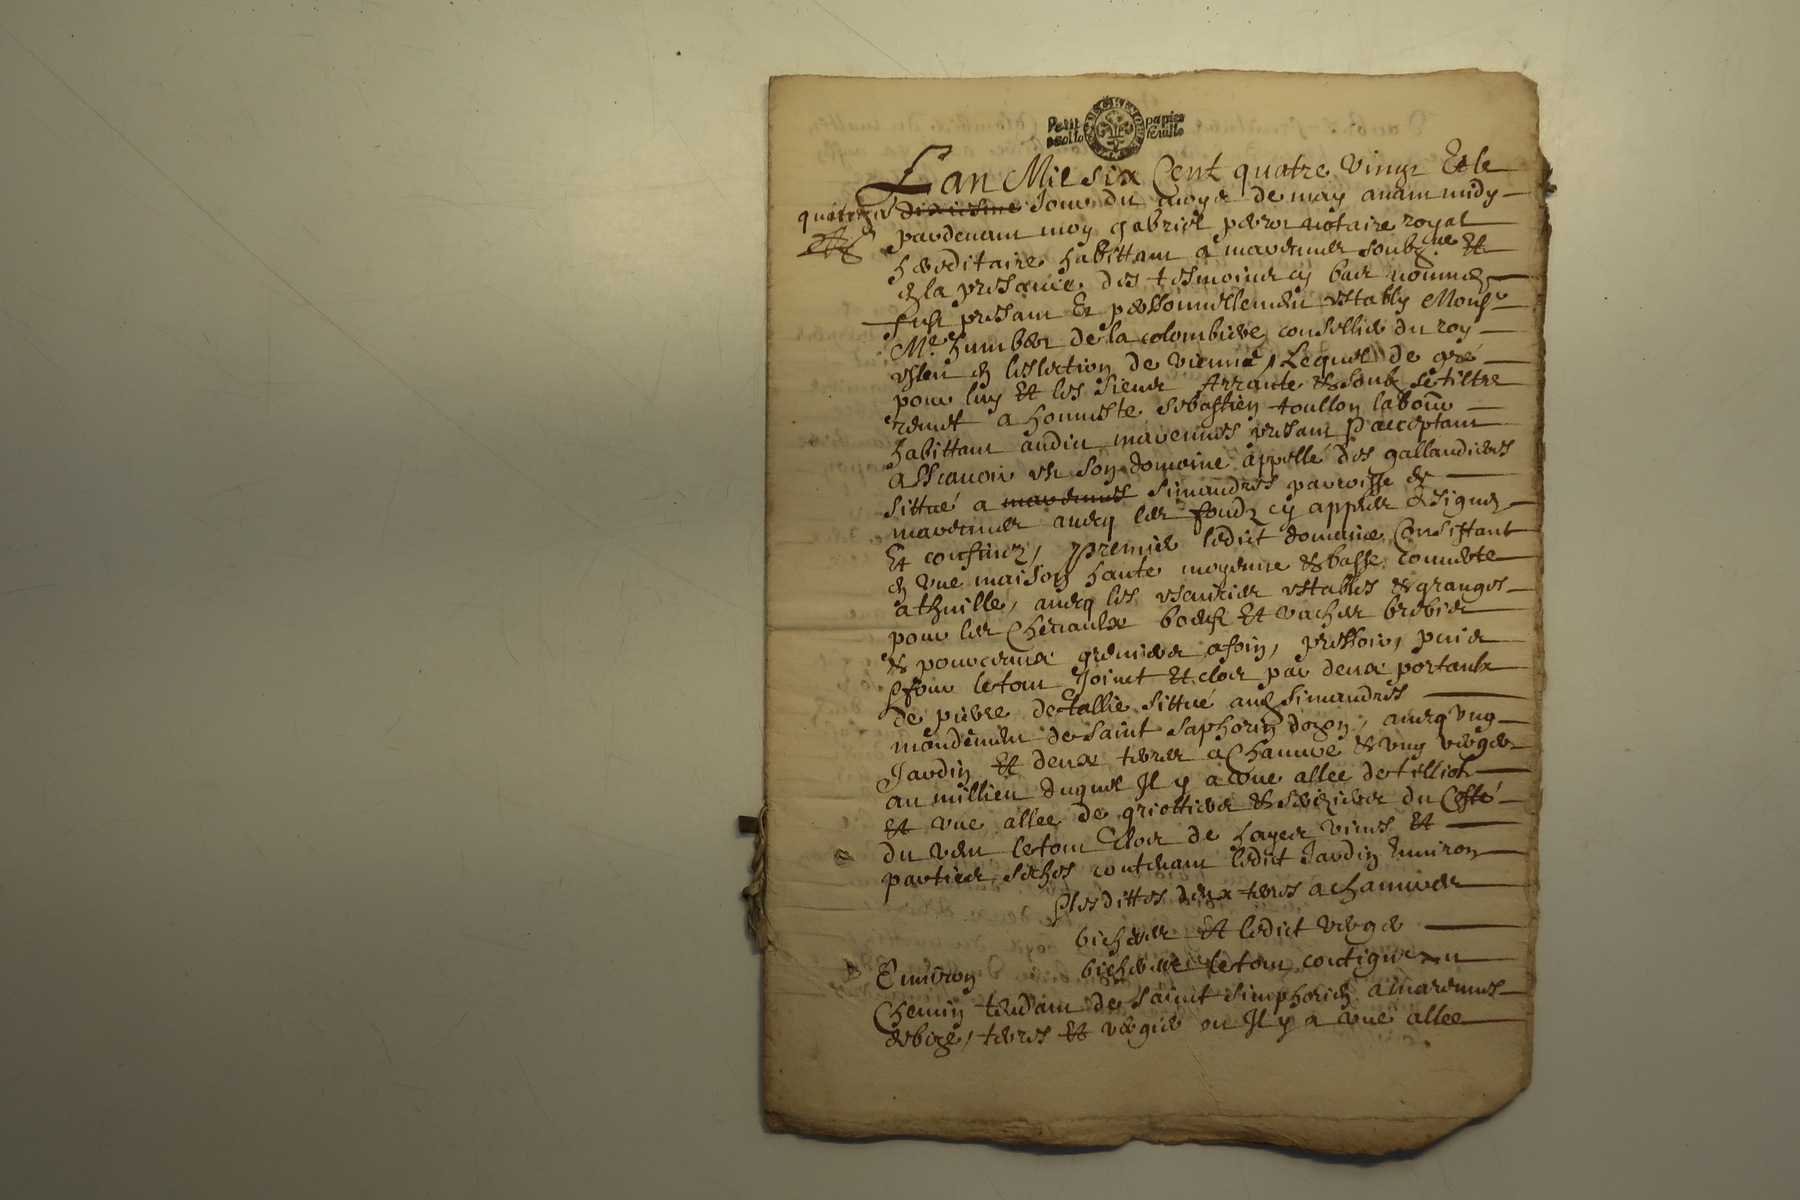 Petit papier
feuille
Lan Mil six Cent quatre vingt Et le
quatorze dixiesme Jour du moys de may avant midy
pardevant moy gabriel notaire royal
hereditaire habittant a marennes soubzne Et
En la presance des tesmoins cy bas nommes
fust present Et personnellement estably Monsr
Me humbert de la colombiere conseillier du roy
esleu En leslection de vienne, Lequel de gré
pour luy Et les siens Arrante & soubz le tiltre
remet a honneste sebastien toullon labour
habittant audit marennes presant & acceptant
assavoir est son domaine appellé des gallandieres
sittué a marennes simandres parroisse de
marennes avecq les fondz cy appres designes
Et confines, premier ledict domaine Consistant
En une maison haute moyenne & basse couverte
a thuille, avecq les escuiries estables & granges
pour les chevaulx boeufs Et vaches brebis
& pourceaux greniers a foin, pressoir, puis
& four le tout Joinct Et clos par deux portaulx
de pierre de tallie sittué aud simandres
mandement de saint saphorin dozon, avecq ung
Jardin Et deux terres a Chanvre & ung verger
au millieu duquel Il y a une allee de tilliots
Et une allee de griottiers & seriziers du Costé
du vent le tout Clos de hayes vives Et
parties seches contenant ledict Jardin Environ
& les dittes deux terres a chanvre
bicherees Et ledict verger
Environ bicherees le tout contigu au
Chemin tendant de saint simphorien a marennes
de bize, terres Et verger ou Il y a une allee